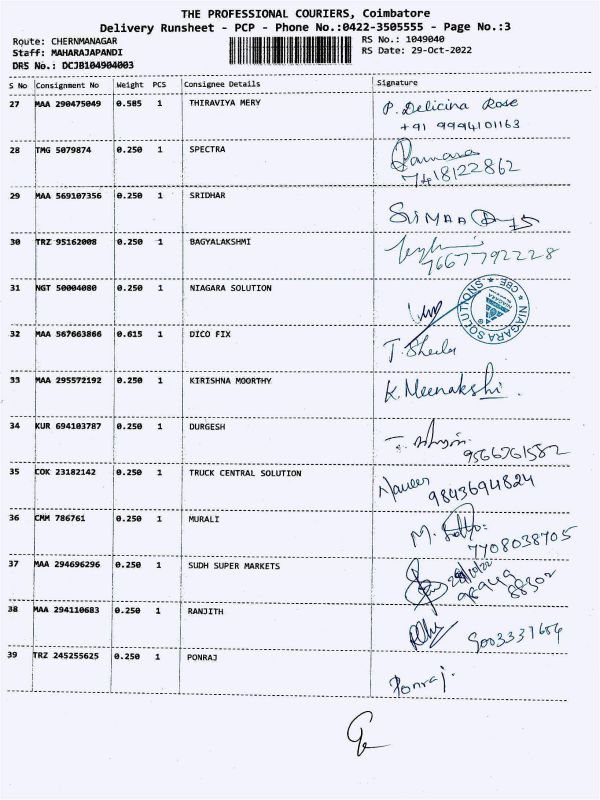 THE PROFESSIONAL COURIERS, Coimbatore
Delivery Runsheet - PCP - Phone No.:0422-3505555 - Page No.:3
Route: CHERNMANAGAR
Staff: MAHARAJAPANDI
DRS No.: DCJB104904003
RS No.: 1049040
RS Date: 29-Oct-2022
S No Consignment No Weight PCS Consignee Details Signature
27 MAA 290475049 0.585 1 THIRAVIYA MERY P. Delicina Rose
+91 9994101163
28 TMG 5079874 0.250 1 SPECTRA
7418122862
29 MAA 569107356 0.250 1 SRIDHAR
30 TRZ 95162008 0.250 1 BAGYALAKSHMI
7667792228
31 NGT 50004080 0.250 1 NIAGARA SOLUTION
NIAGARA SOLUTIONS * CBE *
32 MAA 567663866 0.615 1 DICO FIX T. Sheela
33 MAA 295572192 0.250 1 KIRISHNA MOORTHY K. Meenakshi.
34 KUR 694103787 0.250 1 DURGESH
9566761582
35 COK 23182142 0.250 1 TRUCK CENTRAL SOLUTION Naveen
9843694824
36 CMM 786761 0.250 1 MURALI
7708038705
37 MAA 294696296 0.250 1 SUDH SUPER MARKETS
38 MAA 294110683 0.250 1 RANJITH
39 TRZ 245255625 0.250 1 PONRAJ Ponraj.